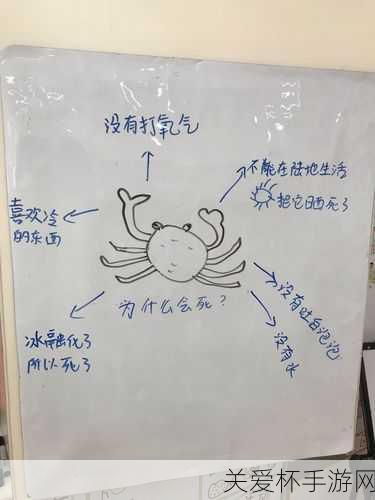 没有打氧气
不能在陆地生活
把它晒死了
喜欢冷
的东西
为什么会死？
没有吐白泡泡
没有水
冰融化了
所以死了
关爱杯手游网